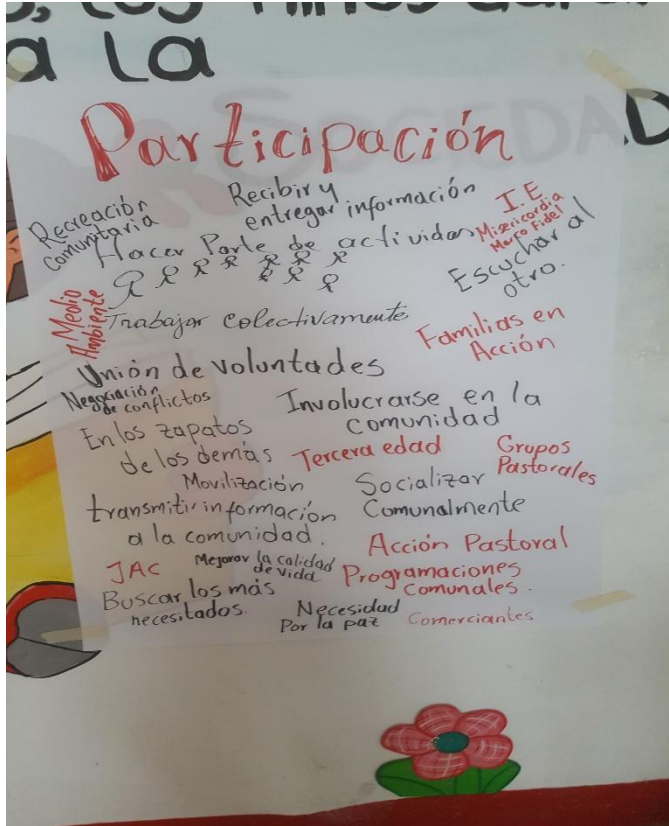 a la
SOCIEDAD
Participación
Recreación
comunitaria
Recibir y
entregar información
I.E
Misericordia
Marco Fidel
Hacer Parte de actividas
Escuchar al
otro.
Medio
Ambiente
Trabajar colectivamente
Familias en
Acción
Unión de voluntades
Negociación
de conflictos
Involucrarse en la
comunidad
En los zapatos
de los demás
Tercera edad
Grupos
Pastorales
Movilización
Socializar
Comunalmente
transmitir información
a la comunidad.
Acción Pastoral
JAC
Mejorar la calidad
de vida
Programaciones
comunales.
Buscar los más
necesitados.
Necesidad
Por la paz
Comerciantes